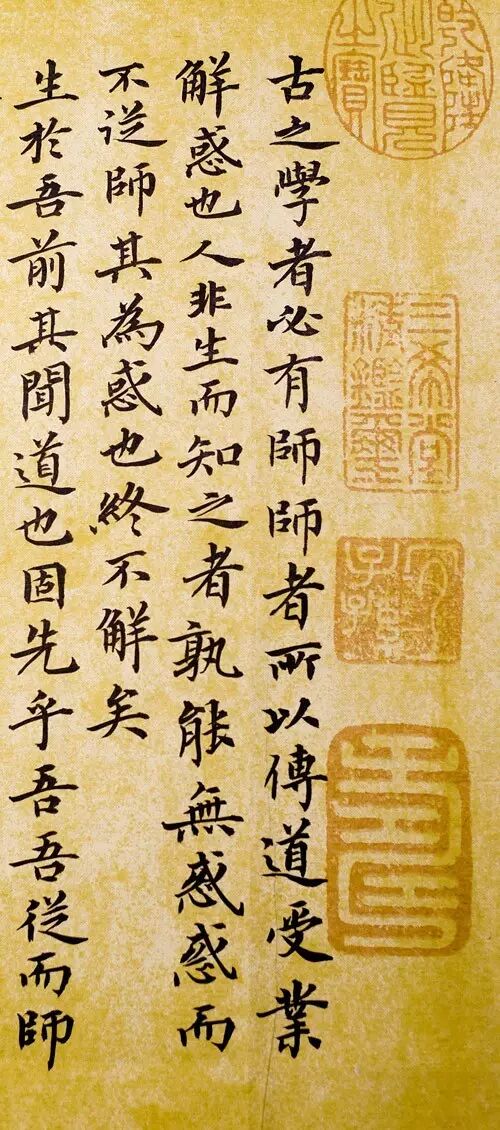 乾隆御覽之寶
三希堂精鑑璽
宜子孫
古之學者必有師師者所以傳道受業
解惑也人非生而知之者孰能無惑惑而
不從師其為惑也終不解矣
生於吾前其聞道也固先乎吾吾從而師